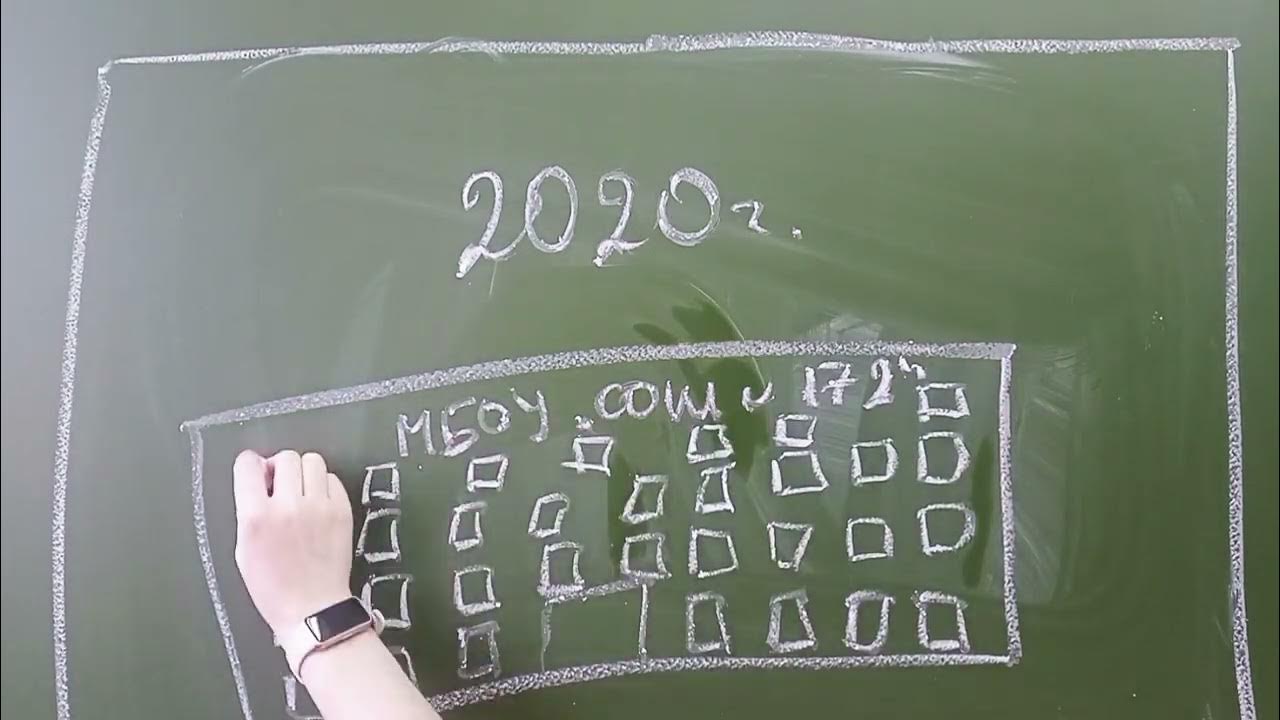 2020г.
МБОУ СОШ № 172